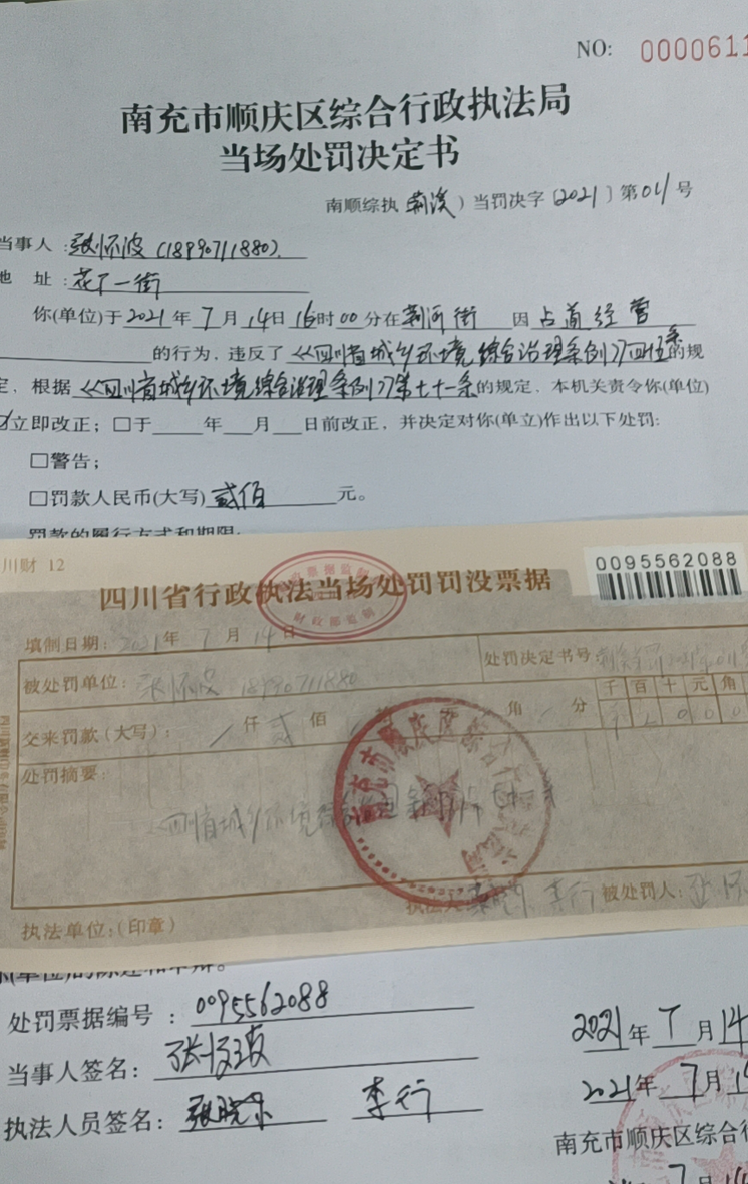 NO: 0000611
南充市顺庆区综合行政执法局
当场处罚决定书
南顺综执 荆溪）当罚决字〔2021〕第011号
当事人：张怀波（18990711880）.
地 址：花丁一街
你(单位)于2021年7月14日16时00分在荆河街 因占道经营
的行为，违反了《四川省城乡环境综合治理条例》四伍条的规
定，根据《四川省城乡环境综合治理条例》第七十一条的规定，本机关责令你(单位)
立即改正；□于 年 月 日前改正，并决定对你(单立)作出以下处罚：
□警告；
□罚款人民币(大写)贰佰 元。
罚款的履行方式和期限：
川财 12
0095562088
四川省行政执法当场处罚罚没票据
填制日期：2021年7月14日
处罚决定书号
被处罚单位：张怀波 18990711880
交来罚款（大写）： / 仟 贰 佰 角 / 分
千 百 十 元 角
处罚摘要：
四川省城乡环境综合治理条例
执法人 李行 被处罚人：张怀
执法单位：（印章）
处罚票据编号：0095562088
2021年7月14
当事人签名：张怀波
2021年7月1
执法人员签名：张晓东 李行
南充市顺庆区综合行
7月14